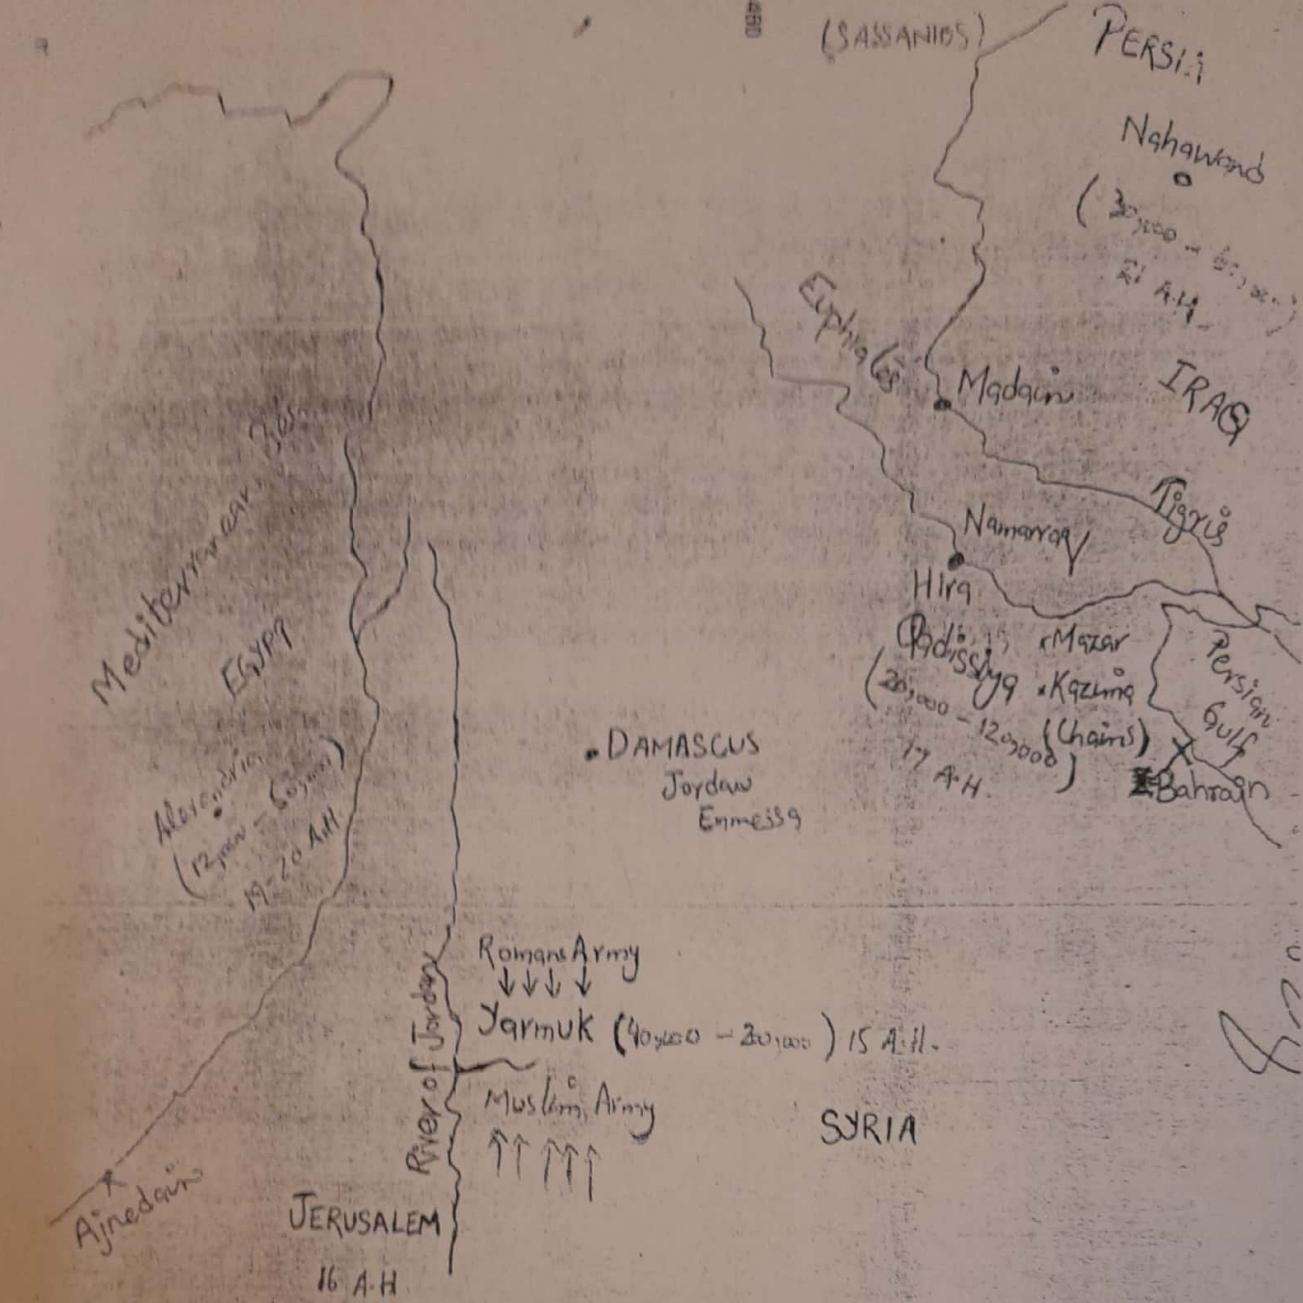 480
(SASSANIDS)
PERSIA
Nahawand
(30,000 - 60,000)
21 A.H.
Euphrates
Madain
IRAQ
Tigris
Namarraq
Hira
Qadissiya
(20,000 - 120,000)
17 A.H.
Mazar
Kazima
(Chains)
Persian
Gulf
Bahrain
Mediterranean
EGYPT
Alexandria
(12,000 - 60,000)
19-20 A.H.
DAMASCUS
Jordan
Emmessa
Romans Army
Yarmuk (40,000 - 200,000) 15 A.H.
River of Jordan
Muslim Army
SYRIA
Ajnedain
JERUSALEM
16 A.H.